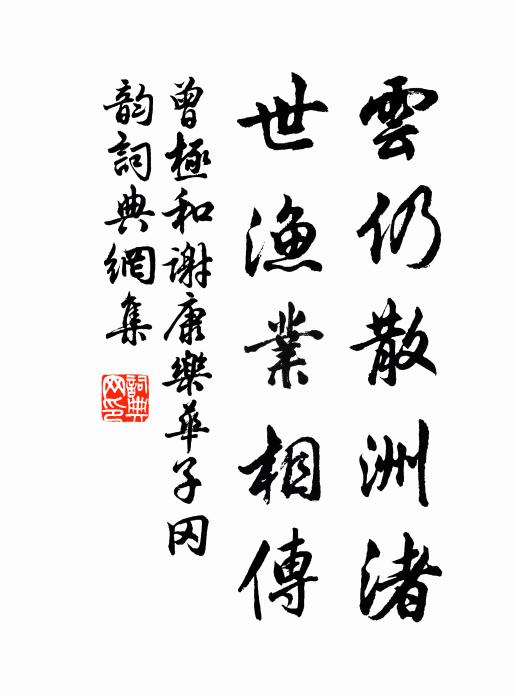 雲仍散洲渚
世漁業相傳
曾極和謝康樂華子冈
韵詞典網集
詞典
网印